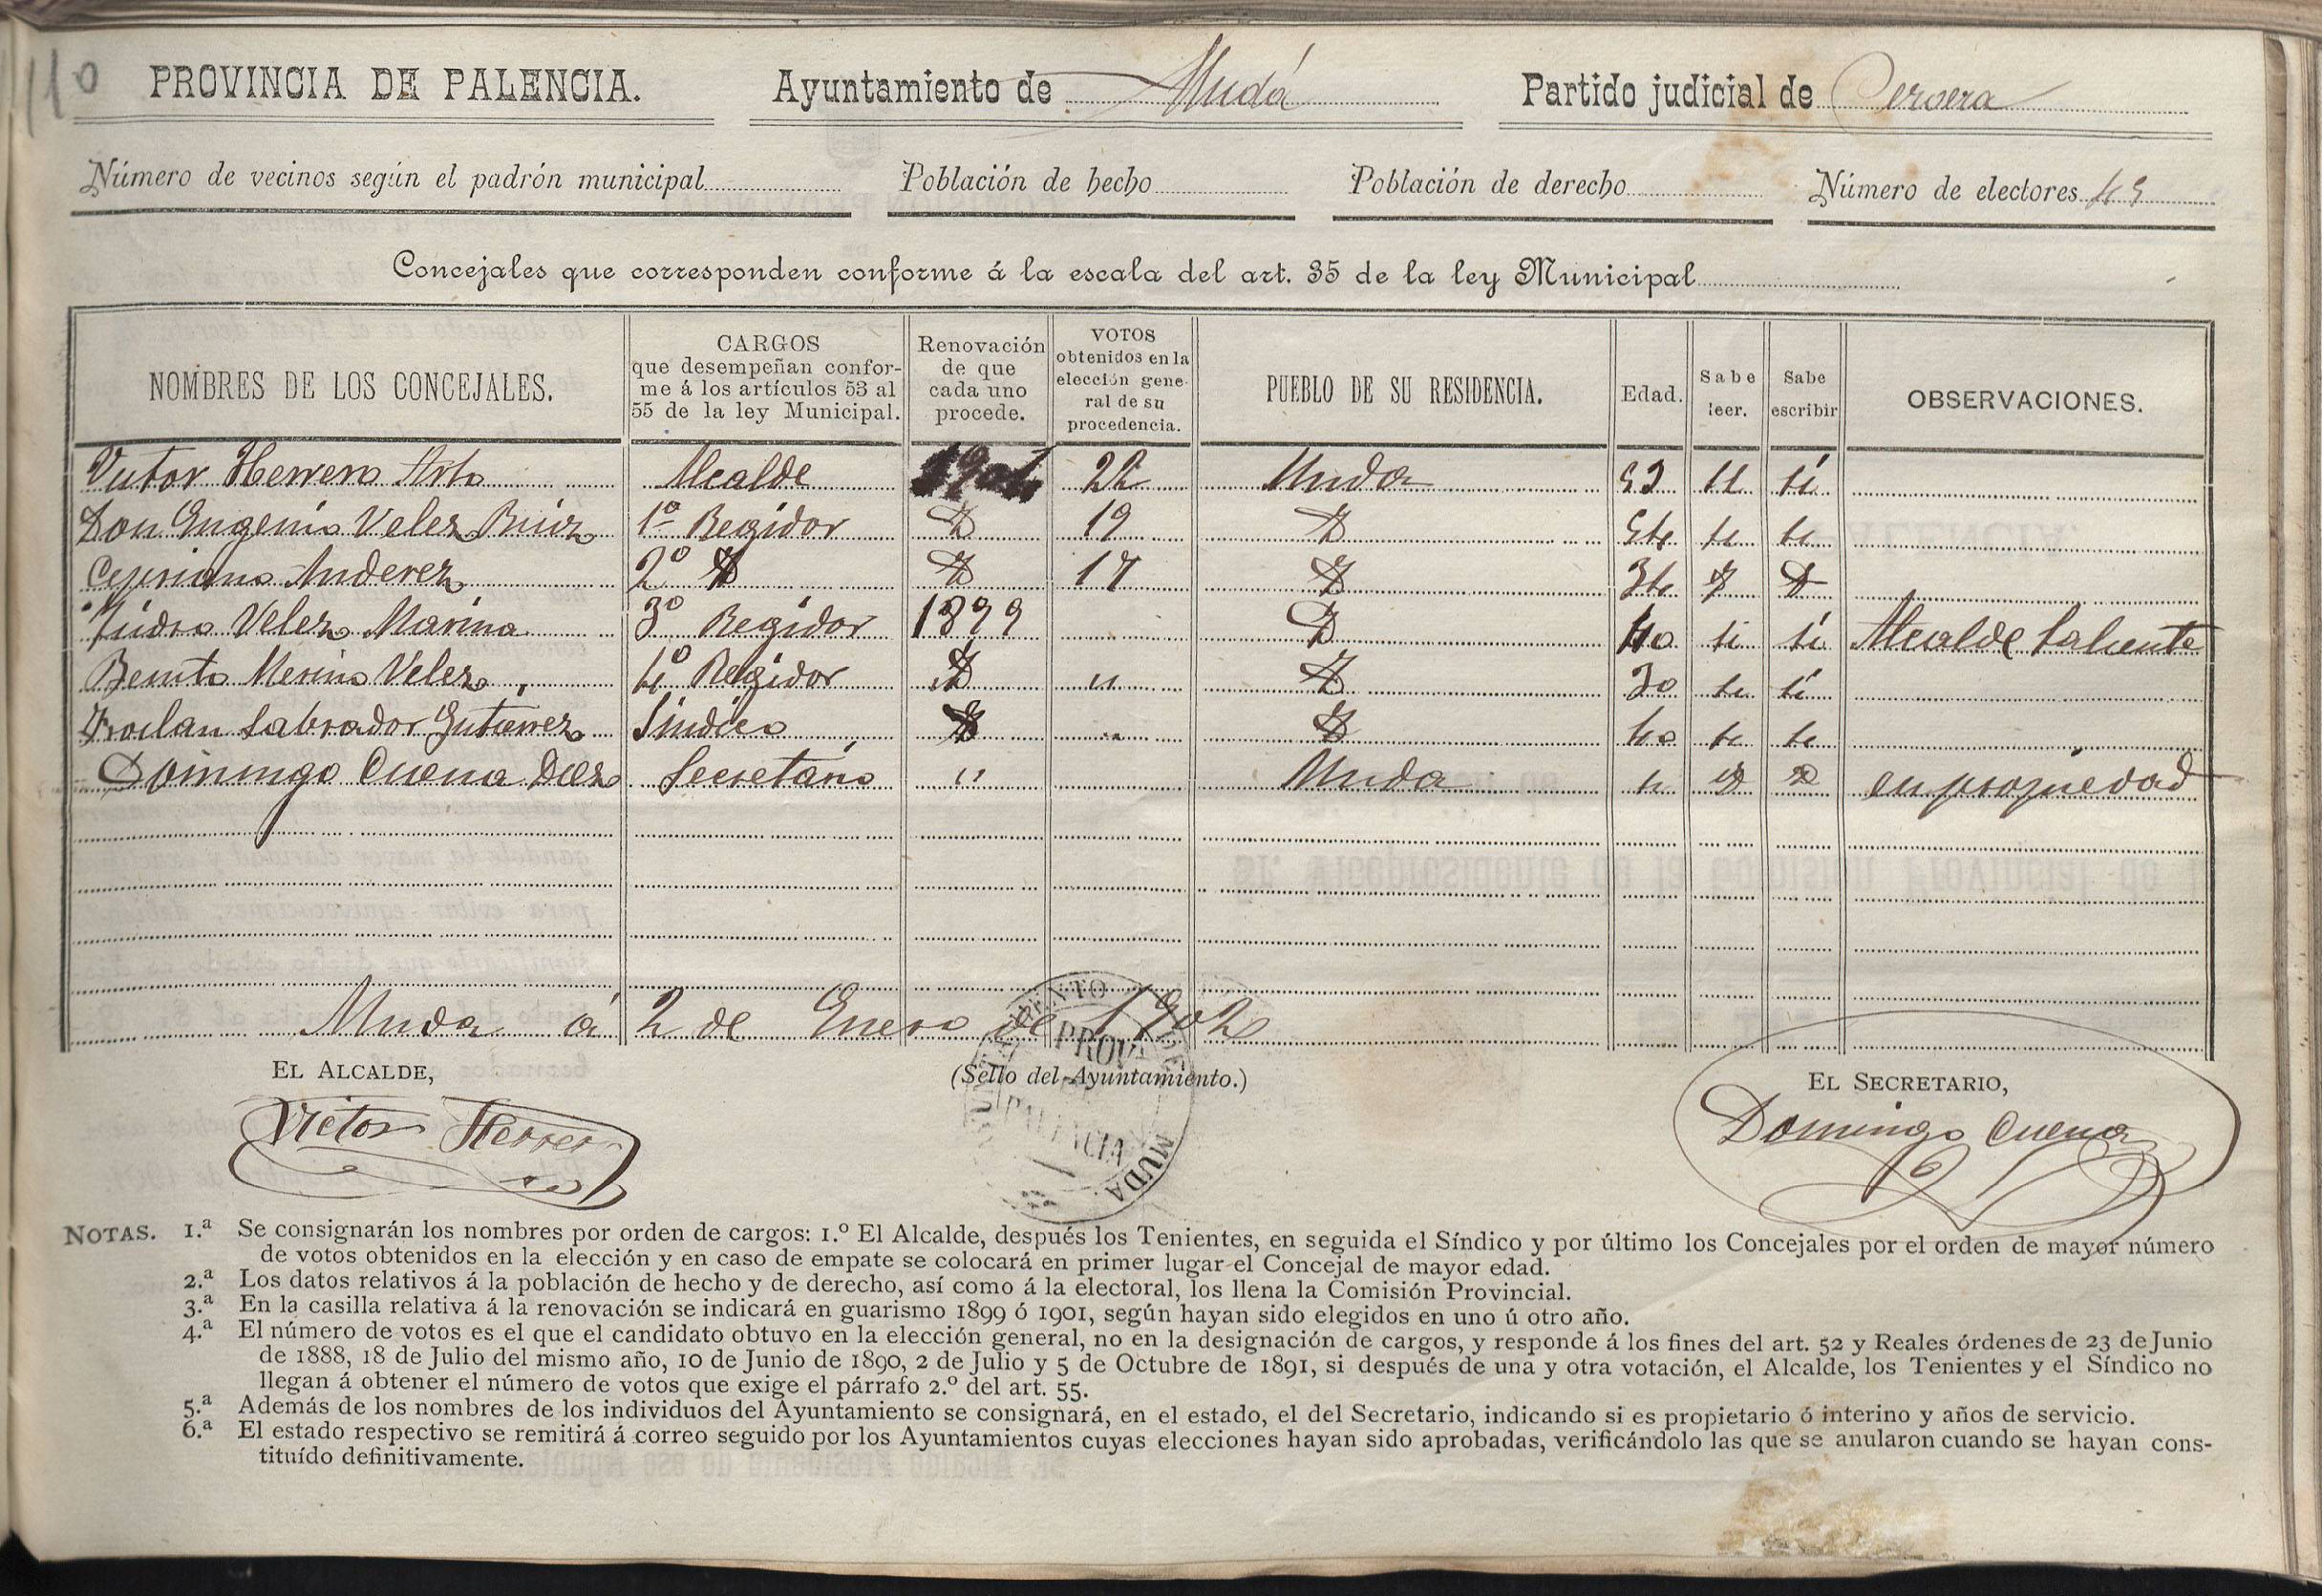 110
PROVINCIA DE PALENCIA. Ayuntamiento de Mudá Partido judicial de Cervera
Número de vecinos según el padrón municipal Población de hecho Población de derecho Número de electores
Concejales que corresponden conforme á la escala del art. 35 de la ley Municipal
NOMBRES DE LOS CONCEJALES. CARGOS que desempeñan conforme á los artículos 53 al 55 de la ley Municipal. Renovación de que cada uno procede. VOTOS obtenidos en la elección general de su procedencia. PUEBLO DE SU RESIDENCIA. Edad. Sabe leer. Sabe escribir OBSERVACIONES.
Victor Herrero Alcalde 1901 22 Muda si si
Don Eugenio Velez Ruiz 1º Regidor D 19 D si si
Cipriano Anderez 2º D D 17 D 34 D D
Isidro Velez Marina 3º Regidor 1899 D 40 si si Alcalde Saliente
Benito Merino Velez 4º Regidor D " D 30 si si
Froilan Labrador Gutierrez Síndico D " D 40 si si
Domingo Cuena Diez Secretario " Muda " en propiedad
Muda á 2 de Enero de 1902
EL ALCALDE, (Sello del Ayuntamiento.) EL SECRETARIO,
Victor Herrero Domingo Cuena
AYUNTAMIENTO DE MUDA
PROVA. PALENCIA
NOTAS. 1.ª Se consignarán los nombres por orden de cargos: 1.º El Alcalde, después los Tenientes, en seguida el Síndico y por último los Concejales por el orden de mayor número
de votos obtenidos en la elección y en caso de empate se colocará en primer lugar el Concejal de mayor edad.
2.ª Los datos relativos á la población de hecho y de derecho, así como á la electoral, los llena la Comisión Provincial.
3.ª En la casilla relativa á la renovación se indicará en guarismo 1899 ó 1901, según hayan sido elegidos en uno ú otro año.
4.ª El número de votos es el que el candidato obtuvo en la elección general, no en la designación de cargos, y responde á los fines del art. 52 y Reales órdenes de 23 de Junio
de 1888, 18 de Julio del mismo año, 10 de Junio de 1890, 2 de Julio y 5 de Octubre de 1891, si después de una y otra votación, el Alcalde, los Tenientes y el Síndico no
llegan á obtener el número de votos que exige el párrafo 2.º del art. 55.
5.ª Además de los nombres de los individuos del Ayuntamiento se consignará, en el estado, el del Secretario, indicando si es propietario ó interino y años de servicio.
6.ª El estado respectivo se remitirá á correo seguido por los Ayuntamientos cuyas elecciones hayan sido aprobadas, verificándolo las que se anularon cuando se hayan cons-
tituído definitivamente.